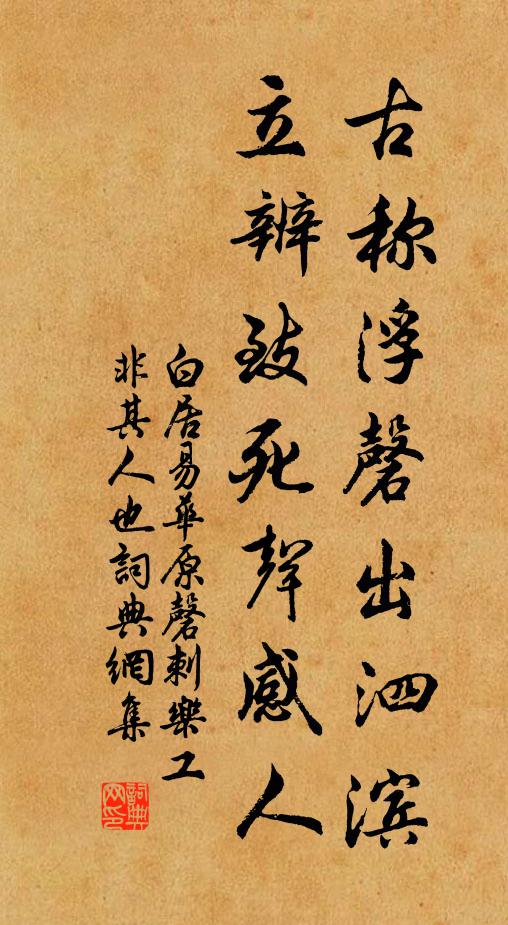 古称浮磬出泗滨
立辨致死聲感人
白居易華原磬刺樂工
非其人也詞典網集
詞典
网印